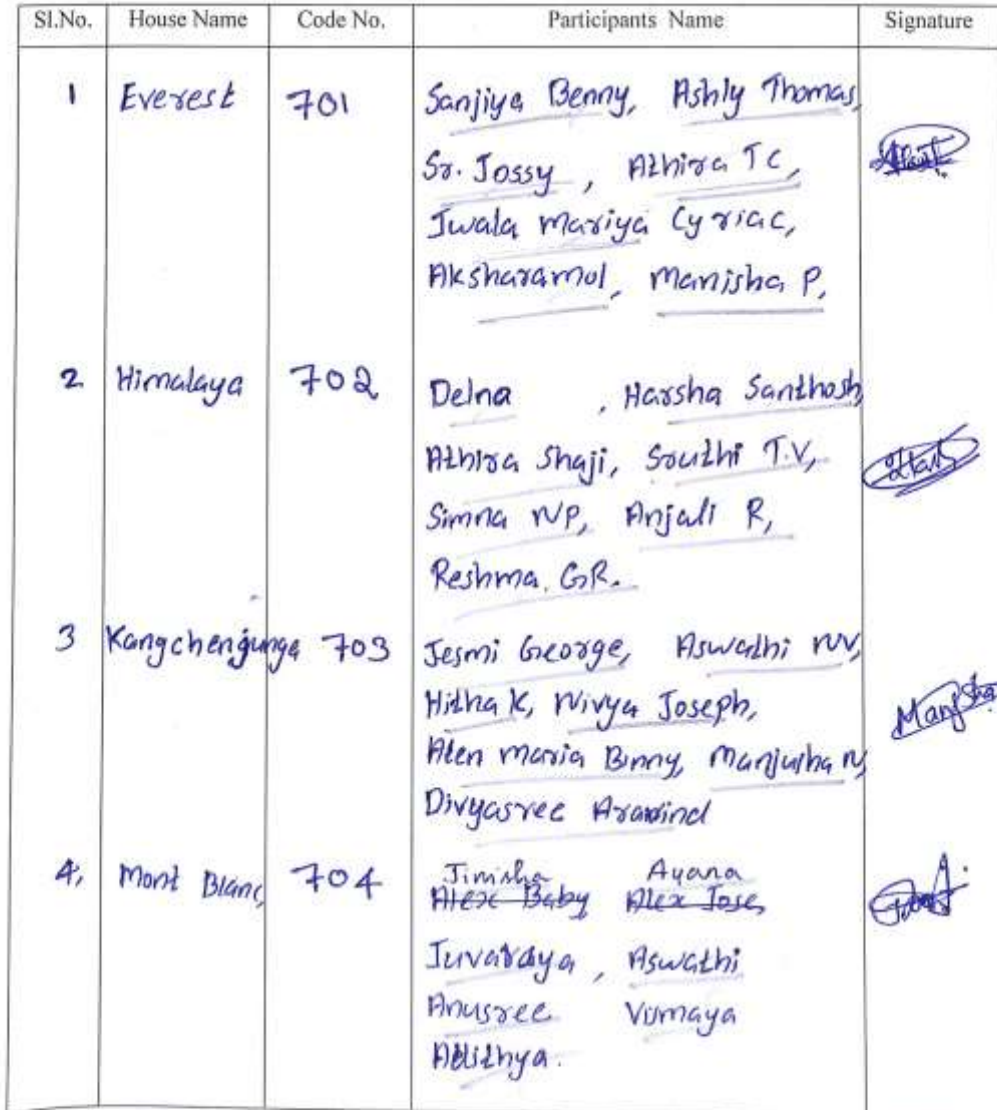 Sl.No. House Name Code No. Participants Name Signature
1 Everest 701 Sanjiya Benny, Ashly Thomas,
Sr. Jossy, Athira TC,
Jwala Mariya Cyriac,
Aksharamol, Manisha P,
2 Himalaya 702 Delna , Harsha Santhosh,
Athira Shaji, Sruthi T.V,
Simna NP, Anjali R,
Reshma. GR.
3 Kangchenjunga 703 Jesmi George, Aswathi NV,
Hitha K, Nivya Joseph,
Alen Maria Binny, Manjusha N,
Manjusha
Divyasree Aravind
Jimisha Ayana
4, Mont Blanc, 704 Alex Baby Alex Jose,
Juvaraya, Aswathi
Anusree Vismaya